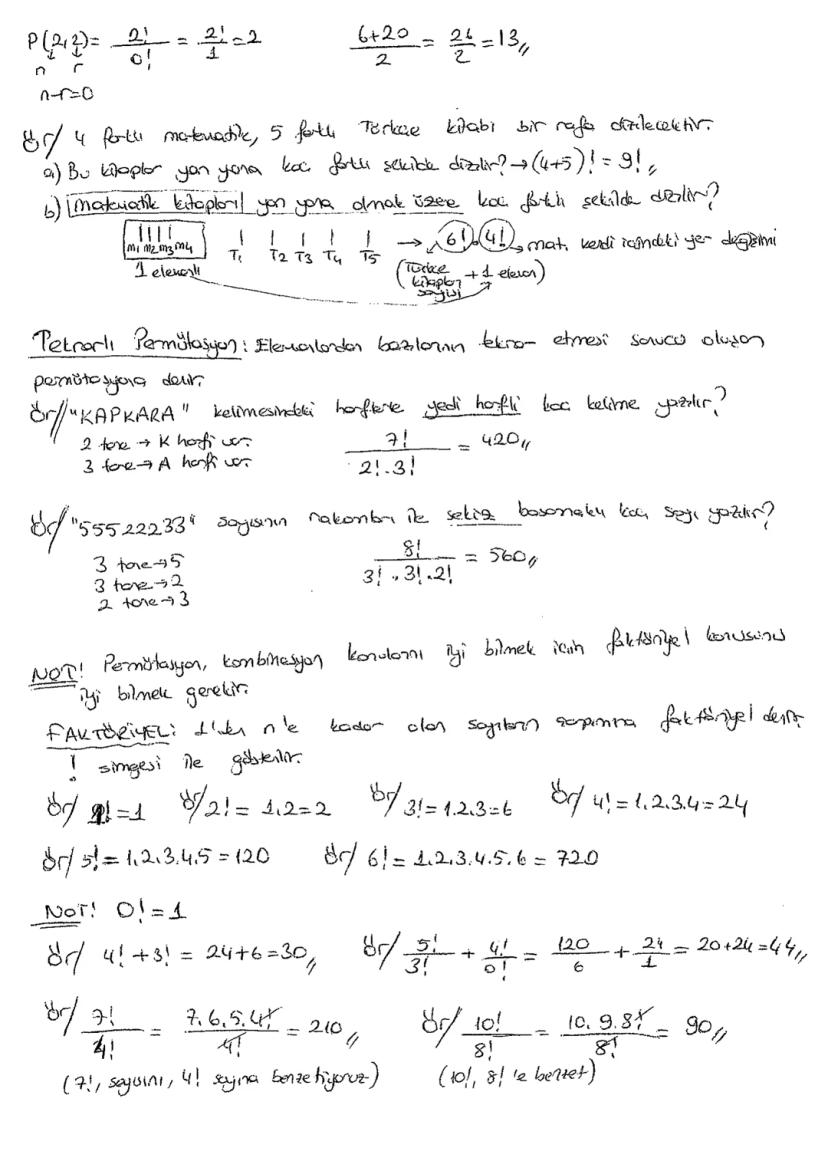 P(2,2) = 2!/0! = 2!/1 = 2    (6+20)/2 = 26/2 = 13,,
n r
n-r=0
Ör/ 4 farklı matematik, 5 farklı Türkçe kitabı bir rafa dizilecektir.
a) Bu kitaplar yan yana kaç farklı şekilde dizilir? → (4+5)! = 9!,,
b) matematik kitapları yan yana olmak üzere kaç farklı şekilde dizilir?
m1 m2 m3 m4 T1 T2 T3 T4 T5 → 6! . 4! → mat. kendi içindeki yer değişimi
1 eleman (Türkçe kitaplar sayısı + 1 eleman)
Tekrarlı Permütasyon: Elemanlardan bazılarının tekrar etmesi sonucu oluşan
permütasyona denir.
Ör// "KAPKARA" kelimesindeki harflerle yedi harfli kaç kelime yazılır?
2 tane → K harfi var.    7!/(2!.3!) = 420,,
3 tane → A harfi var.
Ör/ "55522233" sayısının rakamları ile sekiz basamaklı kaç sayı yazılır?
3 tane → 5    8!/(3!.3!.2!) = 560,,
3 tane → 2
2 tane → 3
NOT! Permütasyon, kombinasyon konularını iyi bilmek için faktöriyel konusunu
iyi bilmek gerekir.
FAKTÖRİYEL: 1'den n'e kadar olan sayıların çarpımına faktöriyel denir.
! simgesi ile gösterilir.
Ör/ 1! = 1    Ör/ 2! = 1.2 = 2    Ör/ 3! = 1.2.3 = 6    Ör/ 4! = 1.2.3.4 = 24
Ör/ 5! = 1.2.3.4.5 = 120    Ör/ 6! = 1.2.3.4.5.6 = 720
NOT! 0! = 1
Ör/ 4! + 3! = 24+6 = 30,,    Ör/ 5!/3! + 4!/0! = 120/6 + 24/1 = 20+24 = 44,,
Ör/ 7!/4! = 7.6.5.4!/4! = 210,,    Ör/ 10!/8! = 10.9.8!/8! = 90,,
(7!, sayısını, 4! sayına benzetiyoruz)    (10!, 8! 'e benzet)